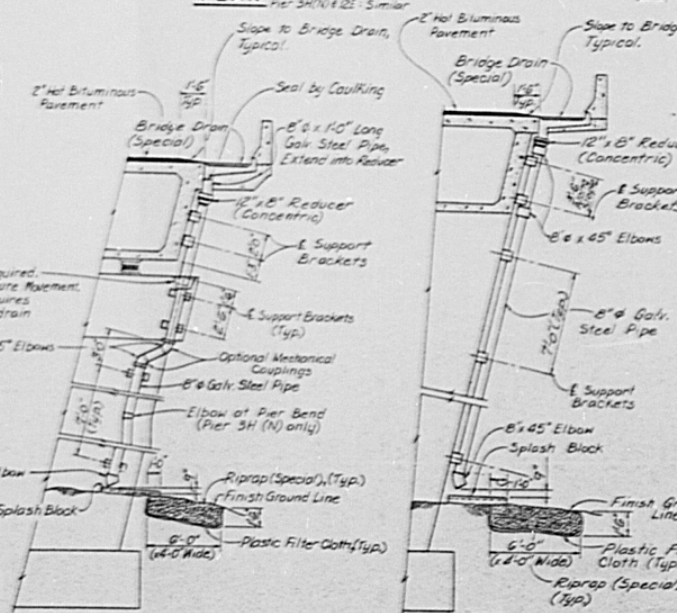 Pier 3H(N) & 12E: Similar
Slope to Bridge Drain,
Typical.
2" Hot Bituminous
Pavement
1'-6"
Typ.
Seal by Caulking
Bridge Drain
(Special)
8" φ x 1'-0" Long
Galv. Steel Pipe,
Extend into Reducer
12" x 8" Reducer
(Concentric)
℄ Support
Brackets
℄ Support Brackets
(Typ.)
Optional Mechanical
Couplings
8" φ Galv. Steel Pipe
Elbow at Pier Bend
(Pier 3H (N) only)
7'-0"
(Typ.)
1'-0"
9"
Riprap (Special), (Typ.)
Finish Ground Line
Splash Block
6'-0"
(x4'-0" Wide)
Plastic Filter Cloth, (Typ.)
2" Hot Bituminous
Pavement
Slope to Bridg
Typical.
Bridge Drain
(Special)
1'-6"
Typ.
12" x 8" Redu
(Concentric)
℄ Support
Brackets
8" φ x 45° Elbows
8" φ Galv.
Steel Pipe
7'-0" (Typ.)
℄ Support
Brackets
8" x 45° Elbow
Splash Block
1'-0"
9"
Finish Gr
Line
6'-0"
(x4'-0" Wide)
Plastic F
Cloth (Typ
Riprap (Special)
(Typ.)